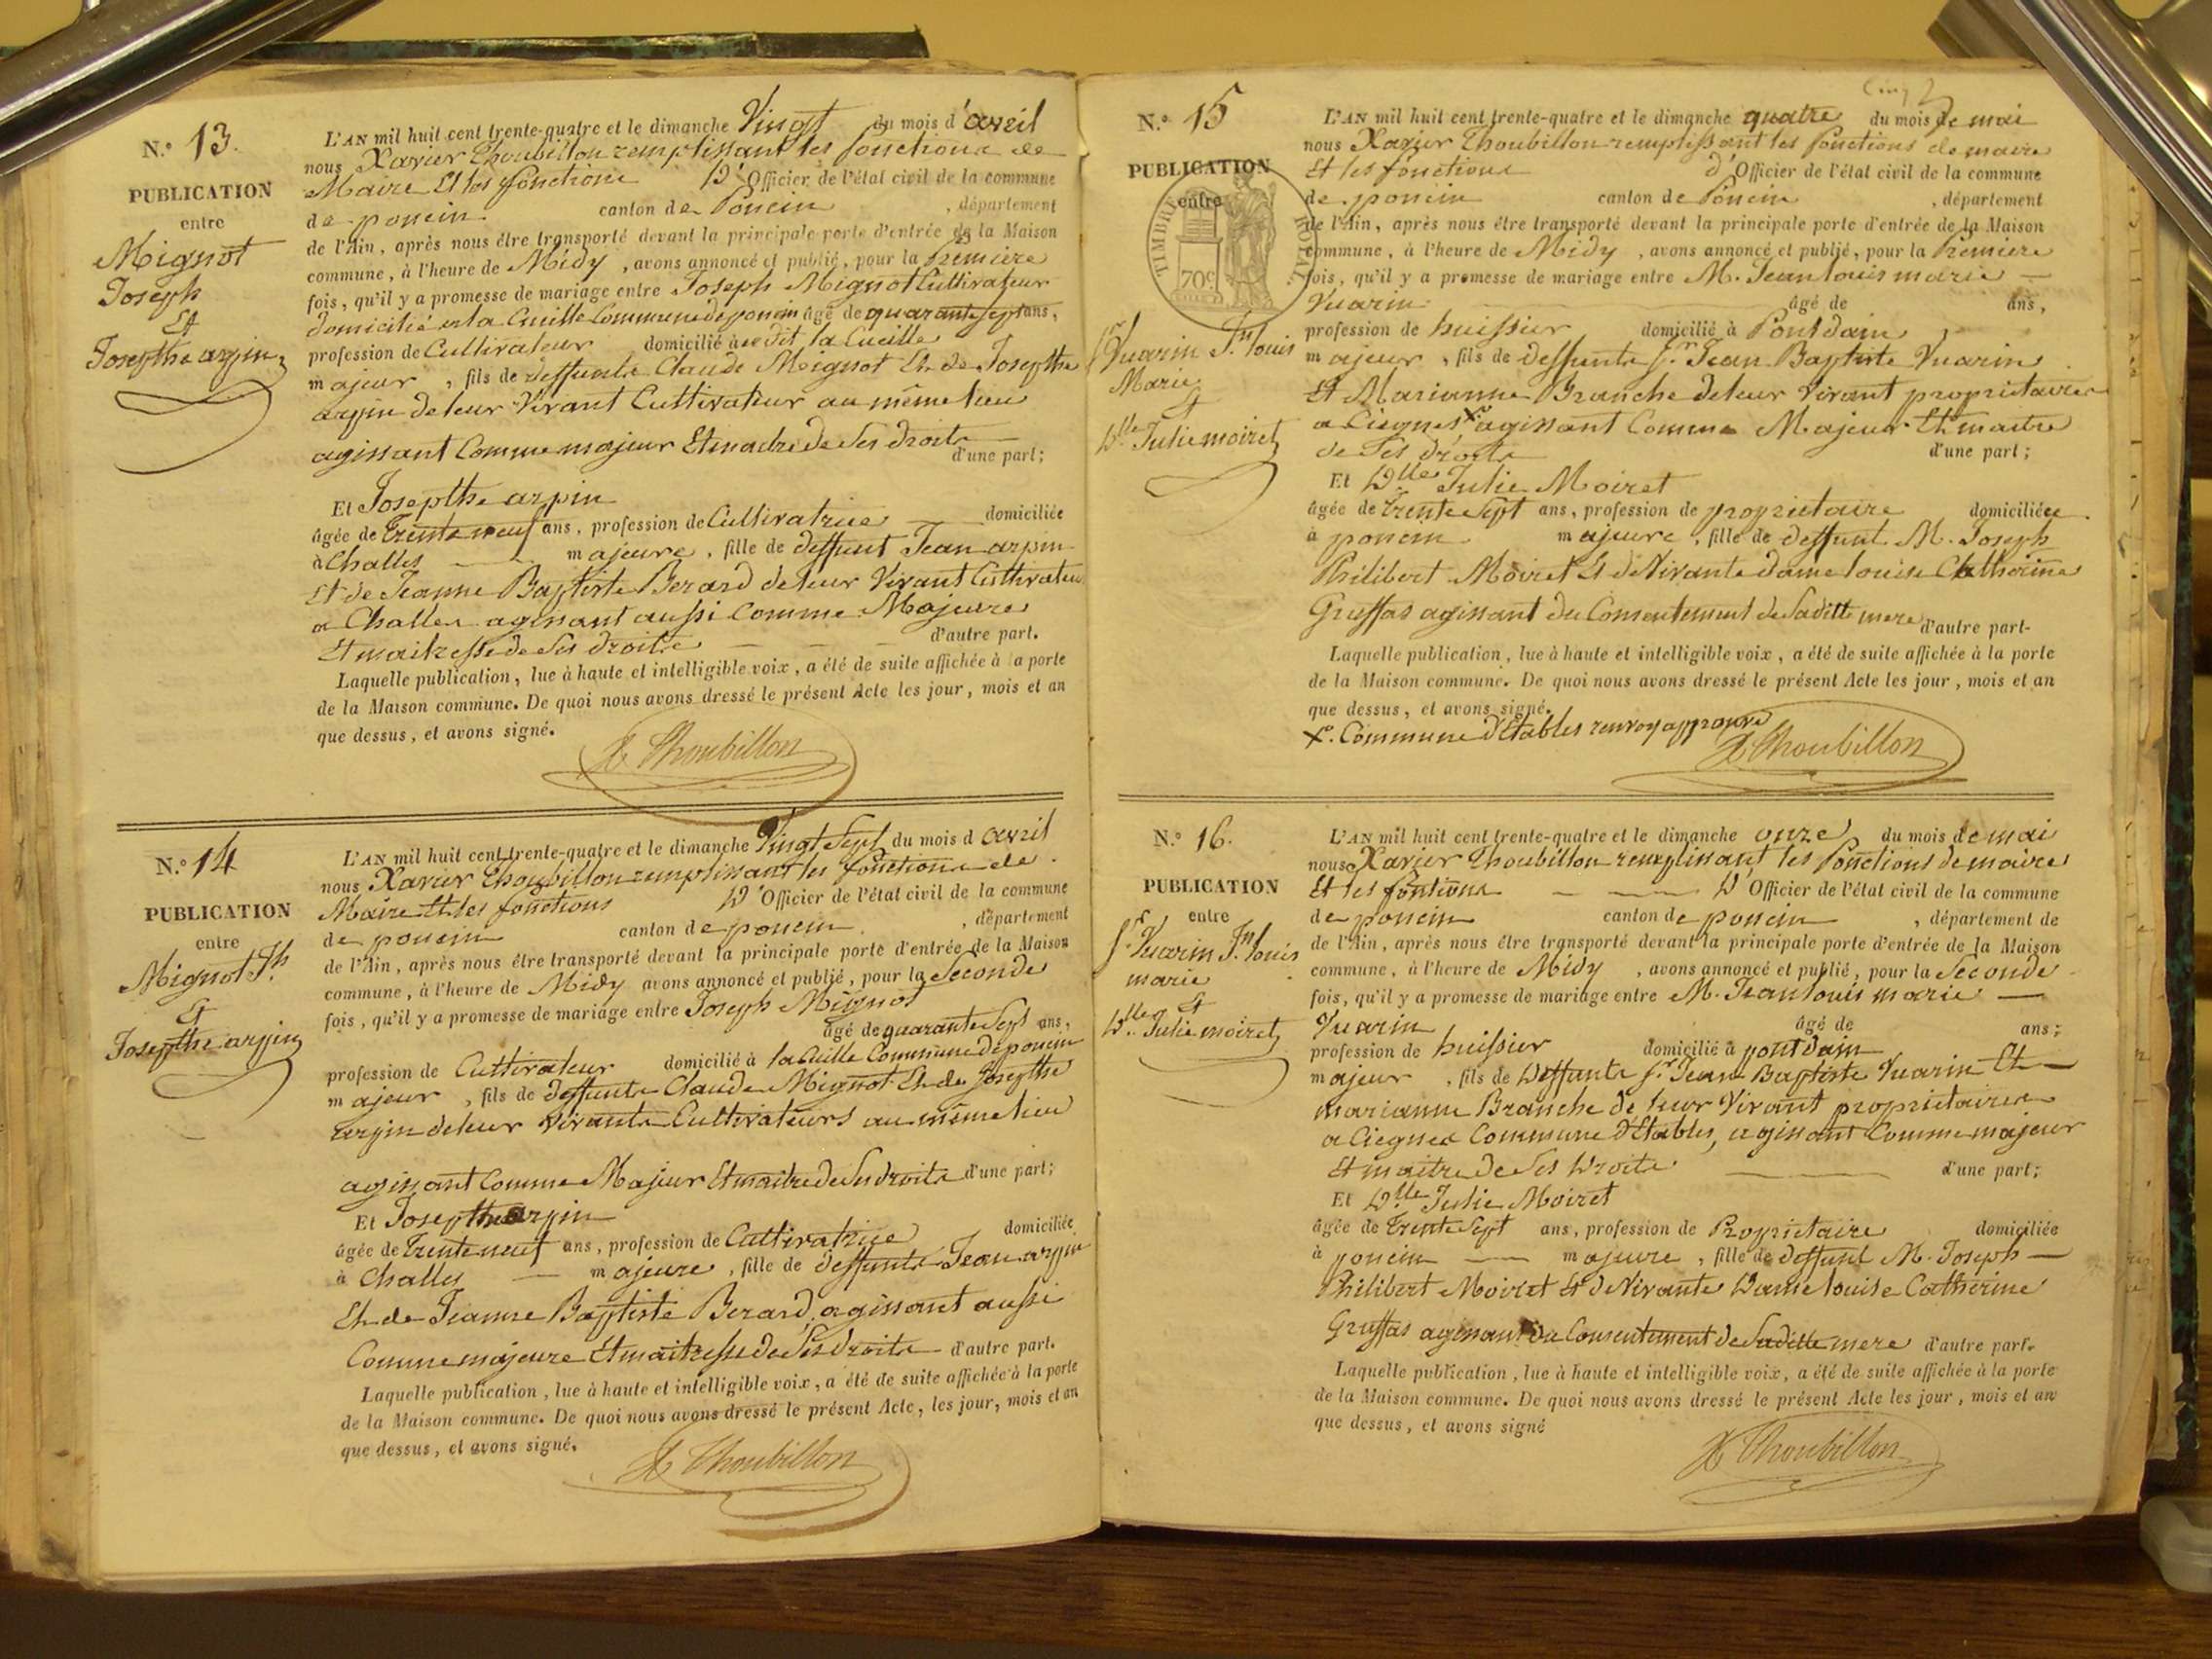 N.º 13.
PUBLICATION
entre
Mignot
Joseph
Et
Josepthe arpin
L'AN mil huit cent trente-quatre et le dimanche Vingt du mois d'avril
nous Xavier Thoubillon remplissant les fonctions de
Maire Et les fonctions D'Officier de l'état civil de la commune
de poncin canton de Poncin , département
de l'Ain, après nous être transporté devant la principale porte d'entrée de la Maison
commune, à l'heure de Midy , avons annoncé et publié, pour la premiere
fois, qu'il y a promesse de mariage entre Joseph Mignot Cultivateur
domicilié a la Cueille Commune de poncin âgé de quarante sept ans,
profession de Cultivateur domicilié à dit la Cueille
majeur , fils de deffunts Claude Mignot Et de Josepthe
arpin de leur Vivant Cultivateur au même lieu
agissant Comme majeur Et maitre de Ses droits
d'une part;
Et Josepthe arpin
âgée de Trente neuf ans, profession de Cultivatrice domiciliée
à Challes majeure , fille de deffunt Jean arpin
Et de Jeanne Baptiste Berard de leur Vivant Cultivateur
a Challes agissant aussi Comme Majeure
Et maitresse de Ses droits d'autre part.
Laquelle publication, lue à haute et intelligible voix, a été de suite affichée à la porte
de la Maison commune. De quoi nous avons dressé le présent Acte les jour, mois et an
que dessus, et avons signé.
X Thoubillon
N.º 14
PUBLICATION
entre
Mignot Jh
Et
Josepthe arpin
L'AN mil huit cent trente-quatre et le dimanche Vingt Sept du mois d avril
nous Xavier Thoubillon remplissant les fonctions de
Maire Et les fonctions D'Officier de l'état civil de la commune
de poncin canton de poncin , département
de l'Ain, après nous être transporté devant la principale porte d'entrée de la Maison
commune, à l'heure de Midy avons annoncé et publié, pour la Seconde
fois, qu'il y a promesse de mariage entre Joseph Mignot
âgé de quarante Sept ans,
profession de Cultivateur domicilié à la Cuille Commune de poncin
majeur , fils de deffunts Claude Mignot Et de Josepthe
arpin de leur Vivants Cultivateurs au même lieu
agissant Comme Majeur Et maitre de Ses droits d'une part;
Et Josepthe arpin
âgée de Trente neuf ans, profession de Cultivatrice domiciliée
à Challes majeure , fille de deffunts Jean arpin
Et de Jeanne Baptiste Berard, agissant aussi
Comme majeure Et maitresse de Ses droits d'autre part.
Laquelle publication, lue à haute et intelligible voix, a été de suite affichée à la porte
de la Maison commune. De quoi nous avons dressé le présent Acte, les jour, mois et an
que dessus, et avons signé.
X Thoubillon
N.º 15
PUBLICATION
entre
TIMBRE ROYAL
70c
Sr Vuarin Jn Louis
Marie
Et
Dlle Julie moiret
L'AN mil huit cent trente-quatre et le dimanche quatre du mois de mai
nous Xavier Thoubillon remplissant les fonctions de maire
Et les fonctions d'Officier de l'état civil de la commune
de poncin canton de Poncin , département
de l'Ain, après nous être transporté devant la principale porte d'entrée de la Maison
commune, à l'heure de Midy , avons annoncé et publié, pour la Premiere
fois, qu'il y a promesse de mariage entre M. Jean louis marie
Vuarin âgé de ans,
profession de huissier domicilié à Pont dain
majeur , fils de deffunts Sr Jean Baptiste Vuarin
Et Marianne Branche de leur Vivant propriétaires
a Ciegnes x agissant Comme Majeur Et maitre
de Ses droits d'une part;
Et Dlle Julie Moiret
âgée de Trente Sept ans, profession de propriétaire domiciliée
à poncin majeure , fille de deffunt M. Joseph
Philibert Moiret Et de Vivante dame louise Catherine
Gruffas agissant du Consentement de Saditte mere d'autre part.
Laquelle publication, lue à haute et intelligible voix, a été de suite affichée à la porte
de la Maison commune. De quoi nous avons dressé le présent Acte les jour, mois et an
que dessus, et avons signé.
x. Commune d'Etables renvoy approuvé
X Thoubillon
N.º 16.
PUBLICATION
entre
Sr Vuarin Jn Louis
marie
Et
Dlle Julie moiret
L'AN mil huit cent trente-quatre et le dimanche onze du mois de mai
nous Xavier Thoubillon remplissant les fonctions de maire
Et les fontions D'Officier de l'état civil de la commune
de poncin canton de poncin , département de
de l'Ain, après nous être transporté devant la principale porte d'entrée de la Maison
commune, à l'heure de Midy , avons annoncé et publié, pour la Seconde
fois, qu'il y a promesse de mariage entre M. Jean louis marie
Vuarin âgé de ans;
profession de huissier domicilié à pont dain
majeur , fils de Deffunts Sr Jean Baptiste Vuarin Et
marianne Branche de leur Vivant propriétaires
a Ciegnes Commune d'Etables, agissant Comme majeur
Et maitre de Ses Droits d'une part;
Et Dlle Julie Moiret
âgée de Trente Sept ans, profession de Propriétaire domiciliée
à poncin majeure , fille de deffunt M. Joseph
Philibert Moiret Et de Vivante Dame louise Catherine
Gruffas agissant du Consentement de Saditte mere d'autre part.
Laquelle publication, lue à haute et intelligible voix, a été de suite affichée à la porte
de la Maison commune. De quoi nous avons dressé le présent Acte les jour, mois et an
que dessus, et avons signé
X Thoubillon